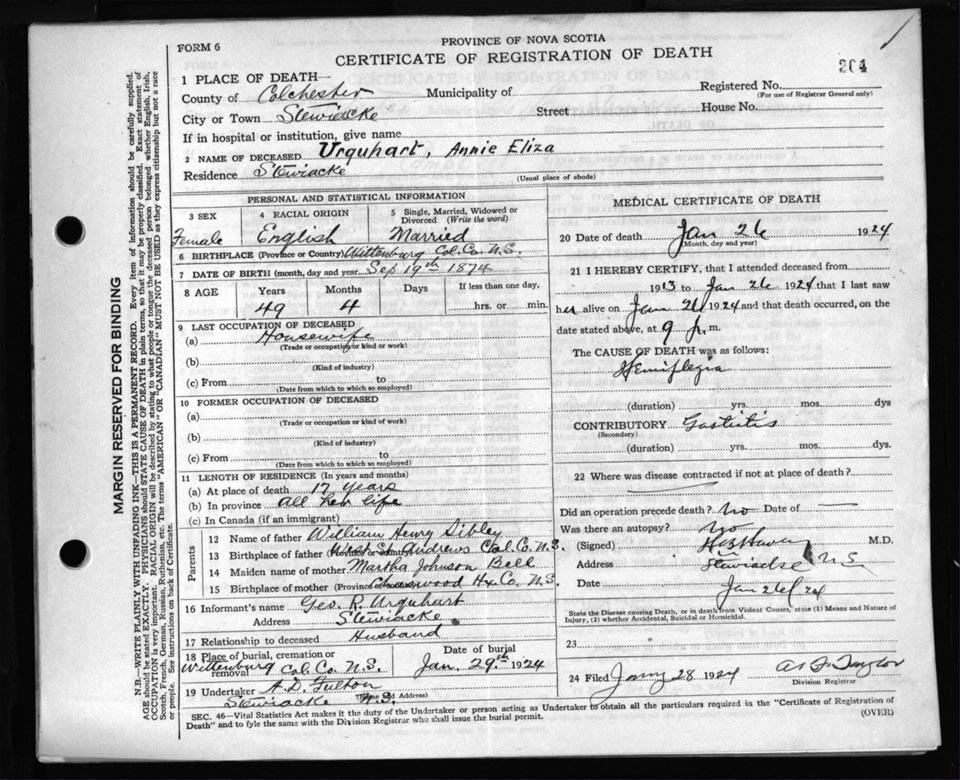 FORM 6
PROVINCE OF NOVA SCOTIA
CERTIFICATE OF REGISTRATION OF DEATH
204
1 PLACE OF DEATH—
County of Colchester Municipality of Registered No.
(For use of Registrar General only)
City or Town Stewiacke Street House No.
If in hospital or institution, give name
2 NAME OF DECEASED Urquhart, Annie Eliza
Residence Stewiacke (Usual place of abode)
PERSONAL AND STATISTICAL INFORMATION
3 SEX 4 RACIAL ORIGIN 5 Single, Married, Widowed or Divorced (Write the word)
Female English Married
6 BIRTHPLACE (Province or Country) Wittenburg Col. Co. N.S.
7 DATE OF BIRTH (month, day and year) Sep 19th 1874
8 AGE Years Months Days If less than one day,
49 4 hrs. or min.
9 LAST OCCUPATION OF DECEASED
(a) Housewife
(Trade or occupation or kind or work)
(b)
(Kind of industry)
(c) From to
(Date from which to which so employed)
10 FORMER OCCUPATION OF DECEASED
(a)
(Trade or occupation or kind of work)
(b)
(Kind of industry)
(c) From to
(Date from which to which so employed)
11 LENGTH OF RESIDENCE (In years and months)
(a) At place of death 17 years
(b) In province all her life
(c) In Canada (if an immigrant)
Parents
12 Name of father William Henry Sibley
13 Birthplace of father (Province or Country) West St Andrews Col. Co. N.S.
14 Maiden name of mother Martha Johnson Bell
15 Birthplace of mother (Province or Country) Chaswood Hx Co. N.S.
16 Informant's name Geo. R. Urquhart
Address Stewiacke
17 Relationship to deceased Husband
18 Place of burial, cremation or removal Date of burial
Wittenburg Col. Co. N.S. Jan. 29th 1924
19 Undertaker A. D. Fulton
(Name and Address)
Stewiacke N.S.
MEDICAL CERTIFICATE OF DEATH
20 Date of death Jan 26 1924
(Month, day and year)
21 I HEREBY CERTIFY, that I attended deceased from
1913 to Jan 26 1924 that I last saw
her alive on Jan 26 1924 and that death occurred, on
date stated above, at 9 p. m.
The CAUSE OF DEATH was as follows:
Hemiplegia
(duration) yrs. mos. dys
CONTRIBUTORY Gastritis
(Secondary)
(duration) yrs. mos. dys.
22 Where was disease contracted if not at place of death?
Did an operation precede death? No Date of —
Was there an autopsy? No
(Signed) M.D.
Address Stewiacke N.S.
Date Jan 26/24
State the Disease causing Death, or in death from Violent Causes, state (1) Means and Nature of Injury, (2) whether Accidental, Suicidal or Homicidal.
23
24 Filed 28 1924 Taylor
Division Registrar
SEC. 46—Vital Statistics Act makes it the duty of the Undertaker or person acting as Undertaker to obtain all the particulars required in the "Certificate of Registration of
Death" and to fyle the same with the Division Registrar who shall issue the burial permit. (OVER)
MARGIN RESERVED FOR BINDING
N.B—WRITE PLAINLY WITH UNFADING INK—THIS IS A PERMANENT RECORD. Every item of information should be carefully supplied.
AGE should be stated EXACTLY. PHYSICIANS should STATE CAUSE OF DEATH in plain terms, so that it may be properly classified. Exact statement of
OCCUPATION is very important. RACIAL ORIGIN will be described by stating to what people or tongue the deceased person belonged whether English, Irish,
Scotch, French, German, Russian, Ruthenian, etc. The terms "AMERICAN" OR "CANADIAN" MUST NOT BE USED as they express citizenship but not a race
or people. See instructions on back of Certificate.